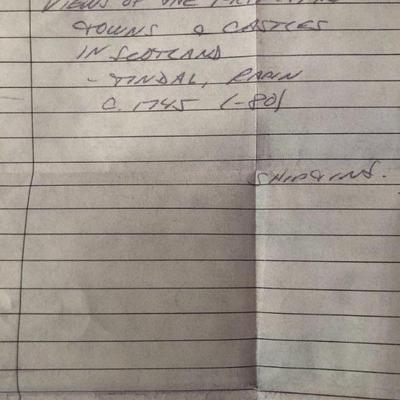 VIEWS OF THE
TOWNS & CASTLES
IN SCOTLAND
- TINDAL, RAPIN
C. 1745 (-80)
SHIPPING.